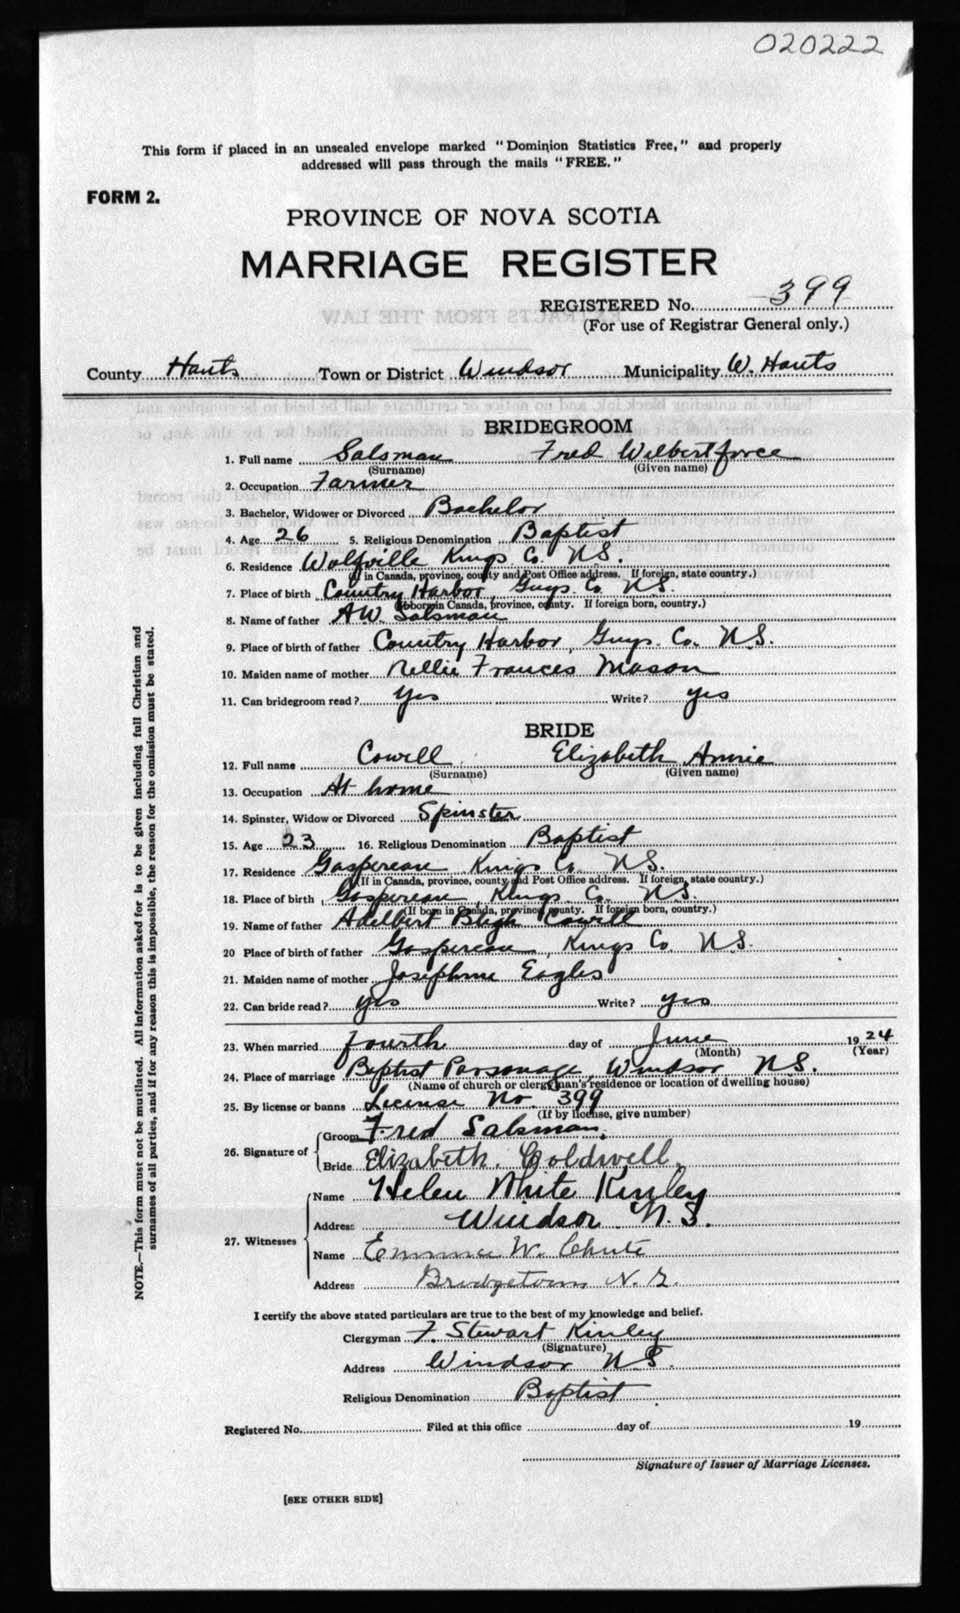 020222
This form if placed in an unsealed envelope marked "Dominion Statistics Free," and properly
addressed will pass through the mails "FREE."
FORM 2.
PROVINCE OF NOVA SCOTIA
MARRIAGE REGISTER
REGISTERED No. 399
(For use of Registrar General only.)
County Hants Town or District Windsor Municipality W. Hants
BRIDEGROOM
1. Full name Salsman Fred Wilbertforce
(Surname) (Given name)
2. Occupation Farmer
3. Bachelor, Widower or Divorced Bachelor
4. Age 26 5. Religious Denomination Baptist
6. Residence Wolfville Kings Co. N.S.
(If in Canada, province, county and Post Office address. If foreign, state country.)
7. Place of birth Country Harbor, Guys. Co. N.S.
(If born in Canada, province, county. If foreign born, country.)
8. Name of father A.W. Salsman
9. Place of birth of father Country Harbor, Guys. Co. N.S.
10. Maiden name of mother Nellie Frances Mason
11. Can bridegroom read? Yes Write? yes
BRIDE
12. Full name Cowell Elizabeth Annie
(Surname) (Given name)
13. Occupation At home
14. Spinster, Widow or Divorced Spinster
15. Age 23 16. Religious Denomination Baptist
17. Residence Gaspereau Kings Co. N.S.
(If in Canada, province, county and Post Office address. If foreign, state country.)
18. Place of birth Gaspereau, Kings. Co. N.S.
(If born in Canada, province, county. If foreign born, country.)
19. Name of father Adelbert Bligh Cowell
20 Place of birth of father Gaspereau, Kings Co. N.S.
21. Maiden name of mother Josephine Eagles
22. Can bride read? yes Write? yes
23. When married fourth day of June 1924
(Month) (Year)
24. Place of marriage Baptist Parsonage, Windsor N.S.
(Name of church or clergyman's residence or location of dwelling house)
25. By license or banns License No. 399
(If by license, give number)
26. Signature of Groom Fred Salsman.
Bride Elizabeth. Coldwell.
27. Witnesses Name Helen White Kinley
Address Windsor. N.S.
Name Emma W. Chute
Address Bridgetown N.S.
I certify the above stated particulars are true to the best of my knowledge and belief.
Clergyman F. Stewart Kinley
(Signature)
Address Windsor N.S.
Religious Denomination Baptist
Registered No. Filed at this office day of 19
Signature of Issuer of Marriage Licenses.
[SEE OTHER SIDE]
NOTE.—This form must not be mutilated. All information asked for is to be given including full Christian and
surnames of all parties, and if for any reason this is impossible, the reason for the omission must be stated.